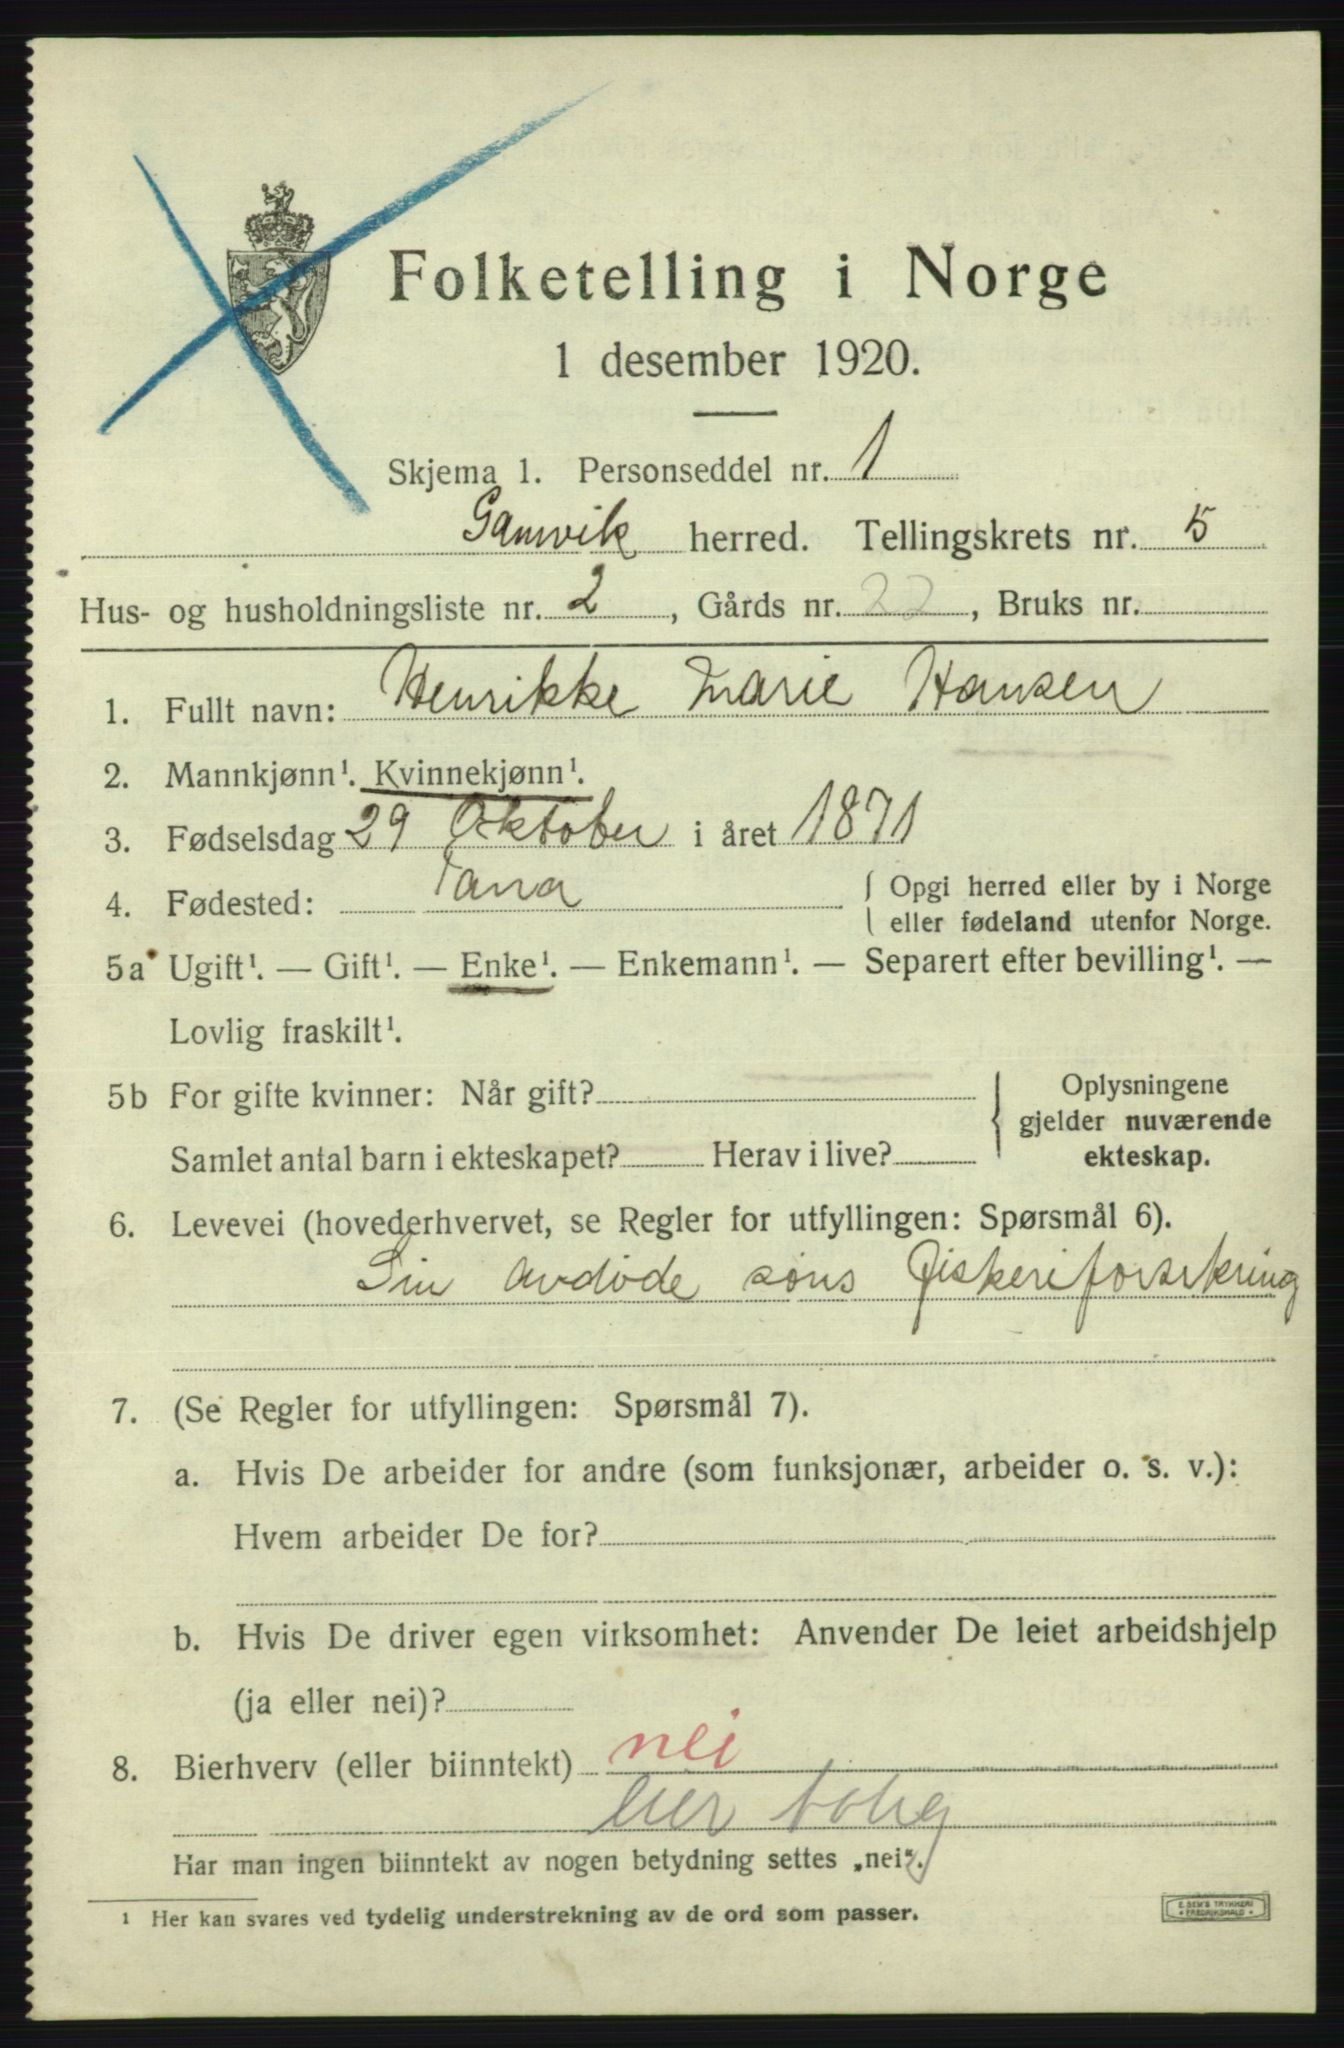 Folketelling i Norge
1 desember 1920.
Skjema 1. Personseddel nr. 1
Gamvik herred. Tellingskrets nr. 5
Hus- og husholdningsliste nr. 2, Gårds nr. 22, Bruks nr.
1. Fullt navn: Henrikke Marie Hansen
2. Mannkjønn¹. Kvinnekjønn¹.
3. Fødselsdag 29 Oktober i året 1871
4. Fødested: Tana { Opgi herred eller by i Norge
eller fødeland utenfor Norge.
5a Ugift¹. — Gift¹. — Enke¹. — Enkemann¹. — Separert efter bevilling¹. —
Lovlig fraskilt¹.
5b For gifte kvinner: Når gift? { Oplysningene
gjelder nuværende
Samlet antal barn i ekteskapet? Herav i live? ekteskap.
6. Levevei (hovederhvervet, se Regler for utfyllingen: Spørsmål 6).
Sin avdøde søns Fiskeriforsikring
7. (Se Regler for utfyllingen: Spørsmål 7).
a. Hvis De arbeider for andre (som funksjonær, arbeider o. s. v.):
Hvem arbeider De for?
b. Hvis De driver egen virksomhet: Anvender De leiet arbeidshjelp
(ja eller nei)?
8. Bierhverv (eller biinntekt) nei
Eier bolig
Har man ingen biinntekt av nogen betydning settes „nei“.
¹ Her kan svares ved tydelig understrekning av de ord som passer.
E. SEM'S TRYKKERI
FREDRIKSHALD